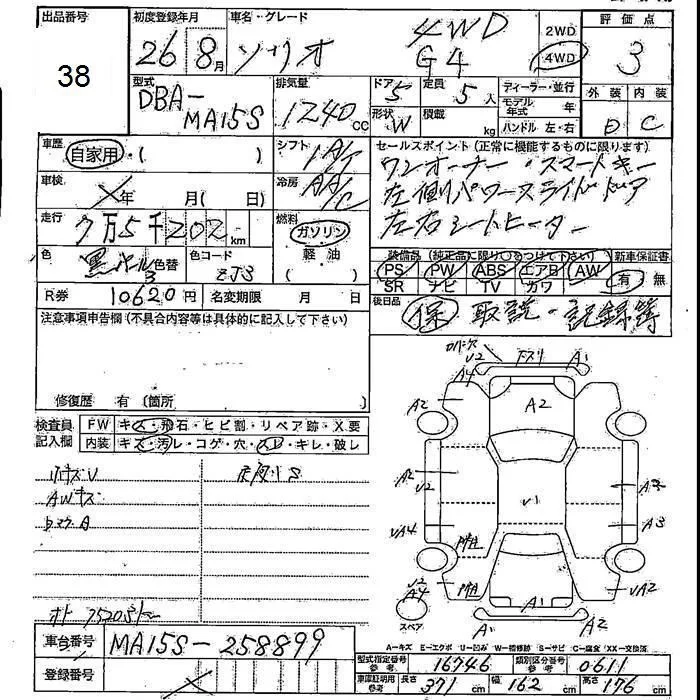 出品番号 初度登録年月 車名・グレード 評価点
38 26 8月 ソリオ 4WD G4 2WD 4WD 3
型式 DBA-MA15S 排気量 1240cc ドア 5 定員 5人 ディーラー・並行 外装 内装
形状 W 積載 kg モデル年式 年 D C
ハンドル 左・右
車歴 自家用・( ) シフト 1A/T セールスポイント(正常に機能するものに限ります)
車検 年 月( 日) 冷房 AA/C ワンオーナー・スマートキー
左側パワースライドドア
走行 7万5千202km 燃料 ガソリン 左右シートヒーター
色 黒パール 色替 色コード ZJ3 軽油 ( ) 装備品(純正品に限り○をつけて下さい) 新車保証書
PS PW ABS エアB AW 有・無
SR ナビ TV カワ
R券 10620円 名変期限 月 日 後日品 保 取説・記録簿
注意事項申告欄(不具合内容等は具体的に記入して下さい)
修復歴 有 〔箇所 〕
検査員記入欄 FW キズ・飛石・ヒビ割・リペア跡・X要
内装 キズ・汚レ・コゲ・穴・スレ・キレ・破レ
V2 下スリ A1
A4
A2 A2
A2 V2 V1
AWキズ
VA4 A3
V2 A4 VA2
スペア A1 A1 A2
A-キズ E-エクボ U-凹み W-補修跡 S-サビ C-腐食 XX-交換済
車台番号 MA15S-258899
型式指定番号 参考 16746 類別区分番号 参考 0611
登録番号
車庫証明用 参考 長さ 371cm 幅 162cm 高さ 176cm